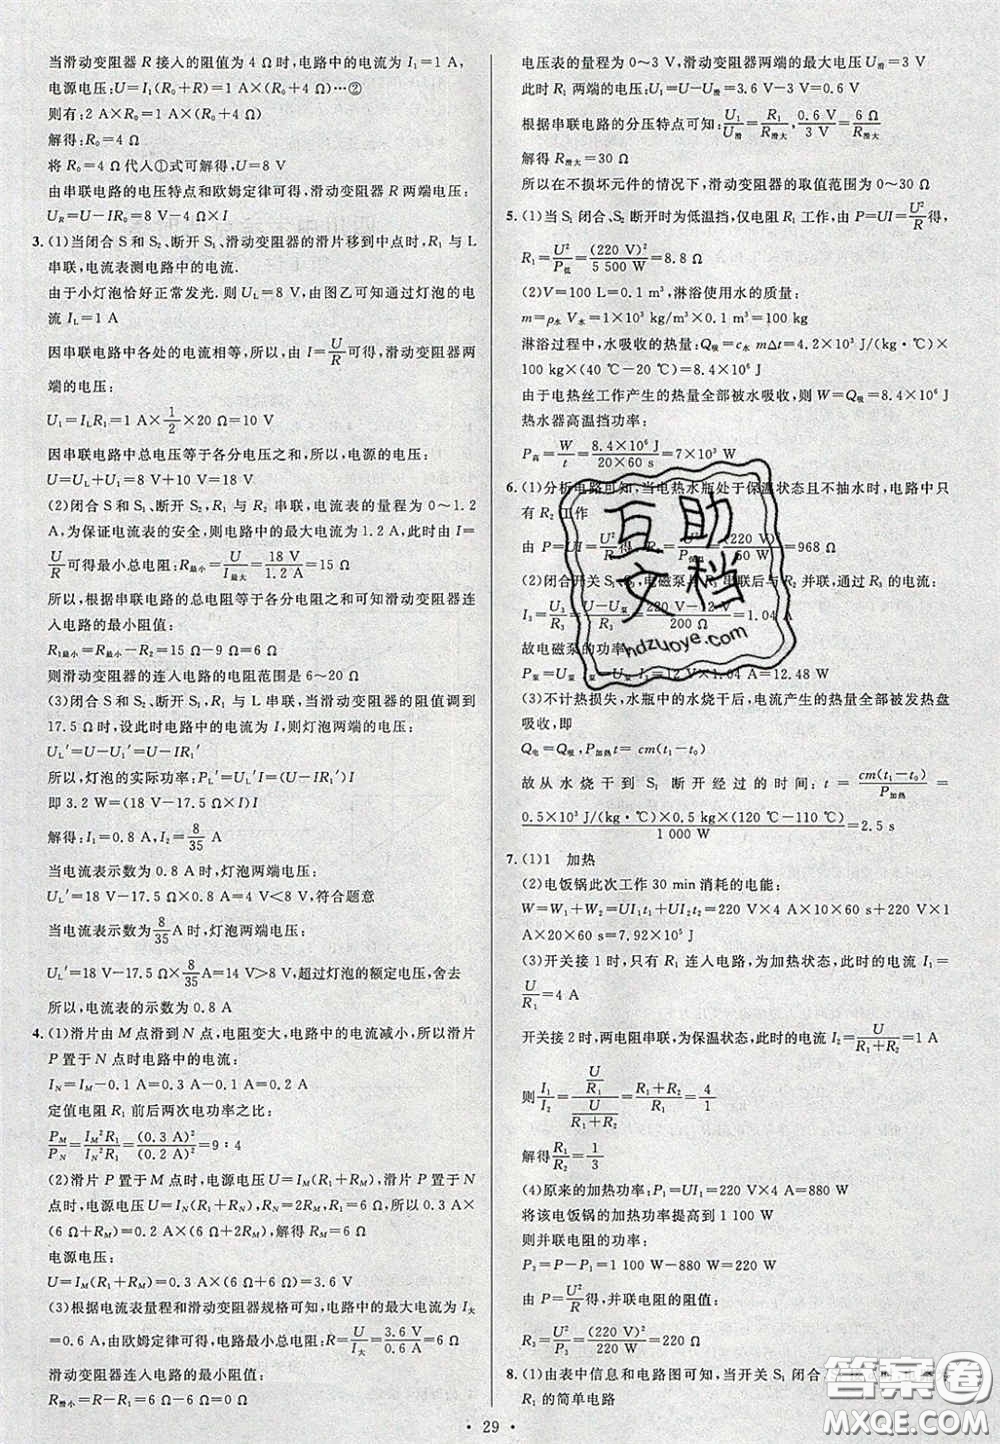 当滑动变阻器 R 接入的阻值为 4 Ω时,电路中的电流为 I₁=1 A,
电源电压:U=I₁(R₀+R)=1 A×(R₀+4 Ω)…②
则有:2 A×R₀=1 A×(R₀+4 Ω)
解得:R₀=4 Ω
将 R₀=4 Ω代人①式可解得,U=8 V
由串联电路的电压特点和欧姆定律可得,滑动变阻器 R 两端电压:
U_R=U-IR₀=8 V-4 Ω×I
3. (1)当闭合 S 和 S₂、断开 S₁、滑动变阻器的滑片移到中点时,R₁ 与 L
串联,电流表测电路中的电流.
由于小灯泡恰好正常发光.则 U_L=8 V,由图乙可知通过灯泡的电
流 I_L=1 A
因串联电路中各处的电流相等,所以,由 I=U/R可得,滑动变阻器两
端的电压:
U₁=I_LR₁=1 A×1/2×20 Ω=10 V
因串联电路中总电压等于各分电压之和,所以,电源的电压:
U=U_L+U₁=8 V+10 V=18 V
(2)闭合 S 和 S₁、断开 S₂时,R₁ 与 R₂ 串联,电流表的量程为 0~1.2
A,为保证电流表的安全,则电路中的最大电流为 1.2 A,此时由 I=
U/R可得最小总电阻:R最小=U/I最大=18 V/1.2 A=15 Ω
所以,根据串联电路的总电阻等于各分电阻之和可得,滑动变阻器连
入电路的最小阻值:
R₁最小=R最小-R₂=15 Ω-9 Ω=6 Ω
则滑动变阻器的连入电路的电阻范围是 6~20 Ω
(3)闭合 S 和 S₂、断开 S₁,R₁ 与 L 串联,当滑动变阻器的阻值调到
17.5 Ω时,设此时电路中的电流为 I,则灯泡两端的电压:
U_L′=U-U₁′=U-IR₁′
所以,灯泡的实际功率:P_L′=U_L′I=(U-IR₁′)I
即 3.2 W=(18 V-17.5 Ω×I)I
解得:I₁=0.8 A,I₂=8/35 A
当电流表示数为 0.8 A时,灯泡两端电压:
U_L′=18 V-17.5 Ω×0.8 A=4 V<8 V,符合题意
当电流表示数为8/35A时,灯泡两端电压:
U_L′=18 V-17.5 Ω×8/35A=14 V>8 V,超过灯泡的额定电压,舍去
所以,电流表的示数为 0.8 A
4. (1)滑片由 M 点滑到 N 点,电阻变大,电路中的电流减小,所以滑片
P 置于 N 点时电路中的电流:
I_N=I_M-0.1 A=0.3 A-0.1 A=0.2 A
定值电阻 R₁ 前后两次电功率之比:
P_M/P_N=I_M²R₁/I_N²R₁=(0.3 A)²/(0.2 A)²=9∶4
(2)滑片 P 置于 M 点时,电源电压 U=I_M(R₁+R_M),滑片 P 置于 N
点时,电源电压 U=I_N(R₁+R_N),R_N=2R_M,R₁=6 Ω,所以 0.3 A×
(6 Ω+R_M)=0.2 A×(6 Ω+2R_M),解得 R_M=6 Ω
电源电压:
U=I_M(R₁+R_M)=0.3 A×(6 Ω+6 Ω)=3.6 V
(3)根据电流表量程和滑动变阻器规格可知,电路中的最大电流为 I大
=0.6 A,由欧姆定律可得,电路最小总电阻:R=U/I大=3.6 V/0.6 A=6 Ω
滑动变阻器连入电路的最小阻值:
R滑小=R-R₁=6 Ω-6 Ω=0 Ω
电压表的量程为 0~3 V,滑动变阻器两端的最大电压 U滑=3 V
此时 R₁ 两端的电压为 U₁=U-U滑=3.6 V-3 V=0.6 V
根据串联电路的分压特点可知:U₁/U滑=R₁/R滑大,0.6 V/3 V=6 Ω/R滑大
解得 R滑大=30 Ω
所以在不损坏元件的情况下,滑动变阻器的取值范围为 0~30 Ω
5. (1)当 S₁ 闭合、S₂ 断开时为低温挡,仅电阻 R₁ 工作,由 P=UI=U²/R得,
R₁=U²/P低=(220 V)²/5 500 W=8.8 Ω
(2)V=100 L=0.1 m³,淋浴使用水的质量:
m=ρ水 V水=1×10³ kg/m³×0.1 m³=100 kg
淋浴过程中,水吸收的热量:Q吸=c水 mΔt=4.2×10³ J/(kg·℃)×
100 kg×(40 ℃-20 ℃)=8.4×10⁶ J
由于电热丝工作产生的热量全部被水吸收,则 W=Q吸=8.4×10⁶ J
热水器高温挡功率:
P高=W/t=8.4×10⁶ J/20×60 s=7×10³ W
6. (1)分析电路可知,当电热水瓶处于保温状态且不抽水时,电路中只
有 R₂ 工作
由 P=UI=U²/R得 R₂=U²/P保=(220 V)²/50 W=968 Ω
(2)闭合开关 S₁、,电磁泵与 R₃ 串联后与 R₂ 并联,通过 R₃ 的电流:
I₃=U₃/R₃=U-U泵/R₃=220 V-12 V/200 Ω=1.04 A
故电磁泵的功率:
P泵=U泵 I泵=U泵 I₃=12 V×1.04 A=12.48 W
(3)不计热损失,水瓶中的水烧干后,电流产生的热量全部被发热盘
吸收,即
Q电=Q吸,P加热t=cm(t₁-t₀)
故从水烧干到 S₁ 断开经过的时间:t=cm(t₁-t₀)/P加热=
0.5×10³ J/(kg·℃)×0.5 kg×(120 ℃-110 ℃)/1 000 W=2.5 s
7. (1)1 加热
(2)电饭锅此次工作 30 min 消耗的电能:
W=W₁+W₂=UI₁t₁+UI₂t₂=220 V×4 A×10×60 s+220 V×1
A×20×60 s=7.92×10⁵ J
(3)开关接 1 时,只有 R₁ 连入电路,为加热状态,此时的电流 I₁=
U/R₁=4 A
开关接 2 时,两电阻串联,为保温状态,此时的电流 I₂=U/R₁+R₂=1 A
则I₁/I₂=U/R₁/U/R₁+R₂=R₁+R₂/R₁=4/1
解得R₁/R₂=1/3
(4)原来的加热功率:P₁=UI₁=220 V×4 A=880 W
将该电饭锅的加热功率提高到 1 100 W
则并联电阻的功率:
P₃=P-P₁=1 100 W-880 W=220 W
由 P=U²/R可得,并联电阻的阻值:
R₃=U²/P₃=(220 V)²/220 W=220 Ω
8. (1)由表中信息和电路图可知,当开关 S₁ 闭合
R₁ 的简单电路
• 29 •
互助
文档
hdzuoye.com
答案圈
MXQE.COM